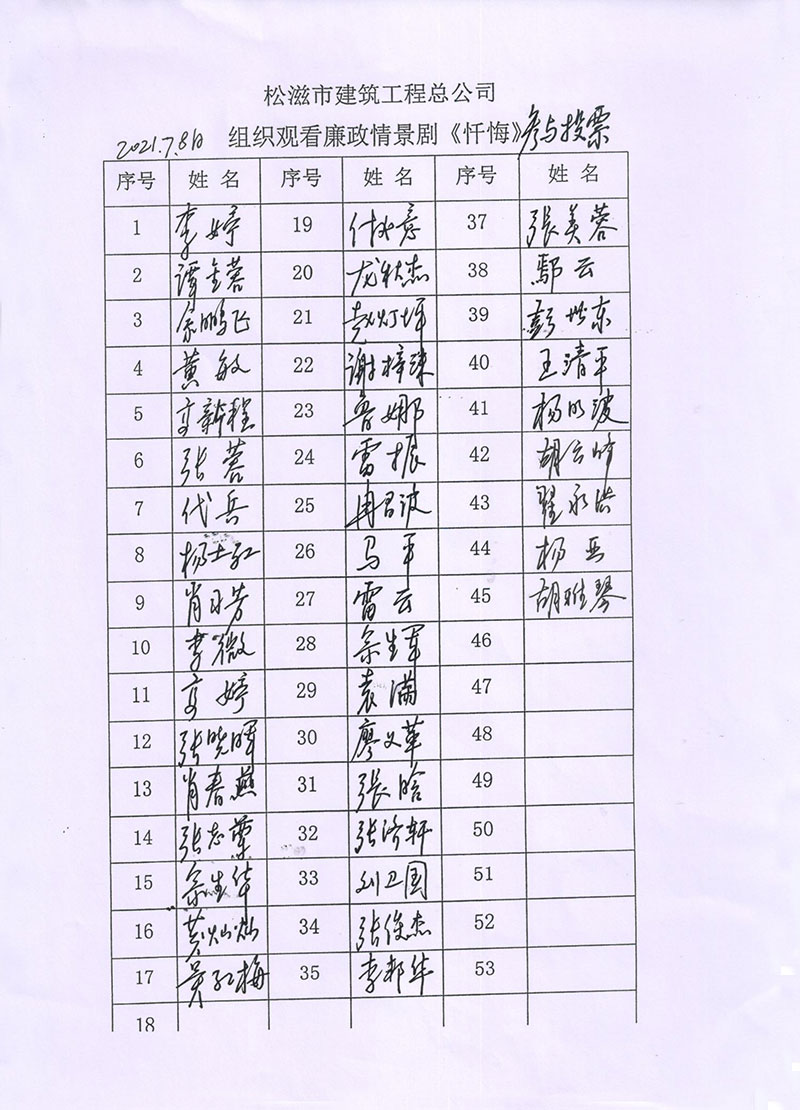 松滋市建筑工程总公司
2021.7.8日 组织观看廉政情景剧《忏悔》参与投票
序号 姓 名 序号 姓 名 序号 姓 名
1 李婷 19 37 張美蓉
2 谭金蓉 20 龙秋杰 38 鄢云
3 余鹏飞 21 39 彭世东
4 黄敏 22 谢梓珠 40 王清平
5 23 鲁娜 41 杨明波
6 张蓉 24 雷振 42 胡云峰
7 代兵 25 冉君波 43 翟永洪
8 杨士红 26 马平 44 杨亚
9 肖月芳 27 雷云 45 胡雅琴
10 李微 28 余生军 46
11 29 袁满 47
12 张晓晖 30 廖义革 48
13 肖春燕 31 張晗 49
14 张志荣 32 张济轩 50
15 余生华 33 刘卫国 51
16 黄灿灿 34 张俊杰 52
17 吴红梅 35 李邦华 53
18